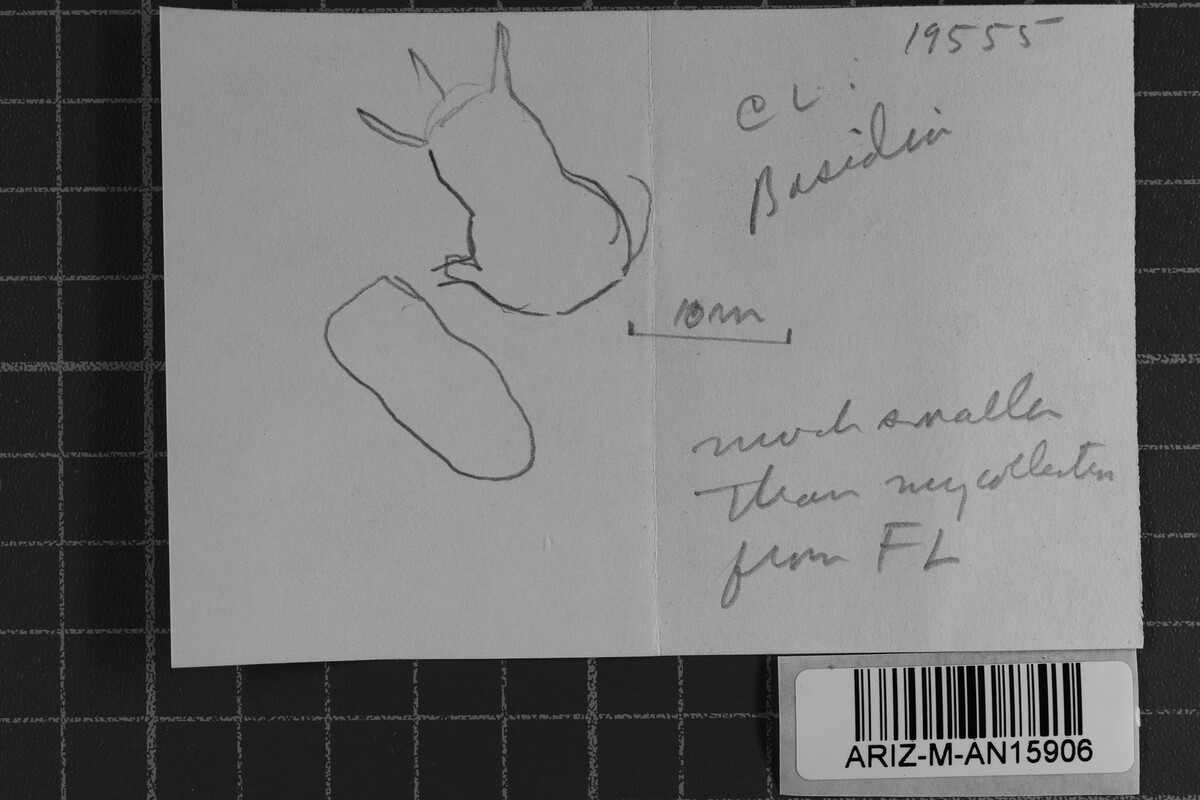 19555
CL:
Basidia
10m
much smaller
than my collection
from FL
ARIZ-M-AN15906